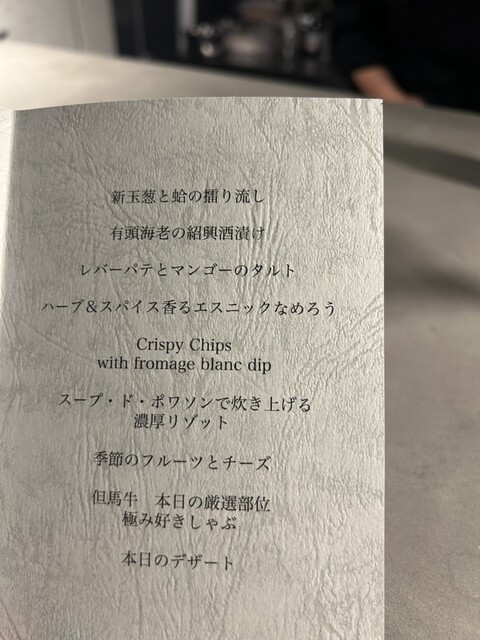 新玉葱と蛤の擂り流し
有頭海老の紹興酒漬け
レバーパテとマンゴーのタルト
ハーブ＆スパイス香るエスニックなめろう
Crispy Chips
with fromage blanc dip
スープ・ド・ポワソンで炊き上げる
濃厚リゾット
季節のフルーツとチーズ
但馬牛　本日の厳選部位
極み好きしゃぶ
本日のデザート